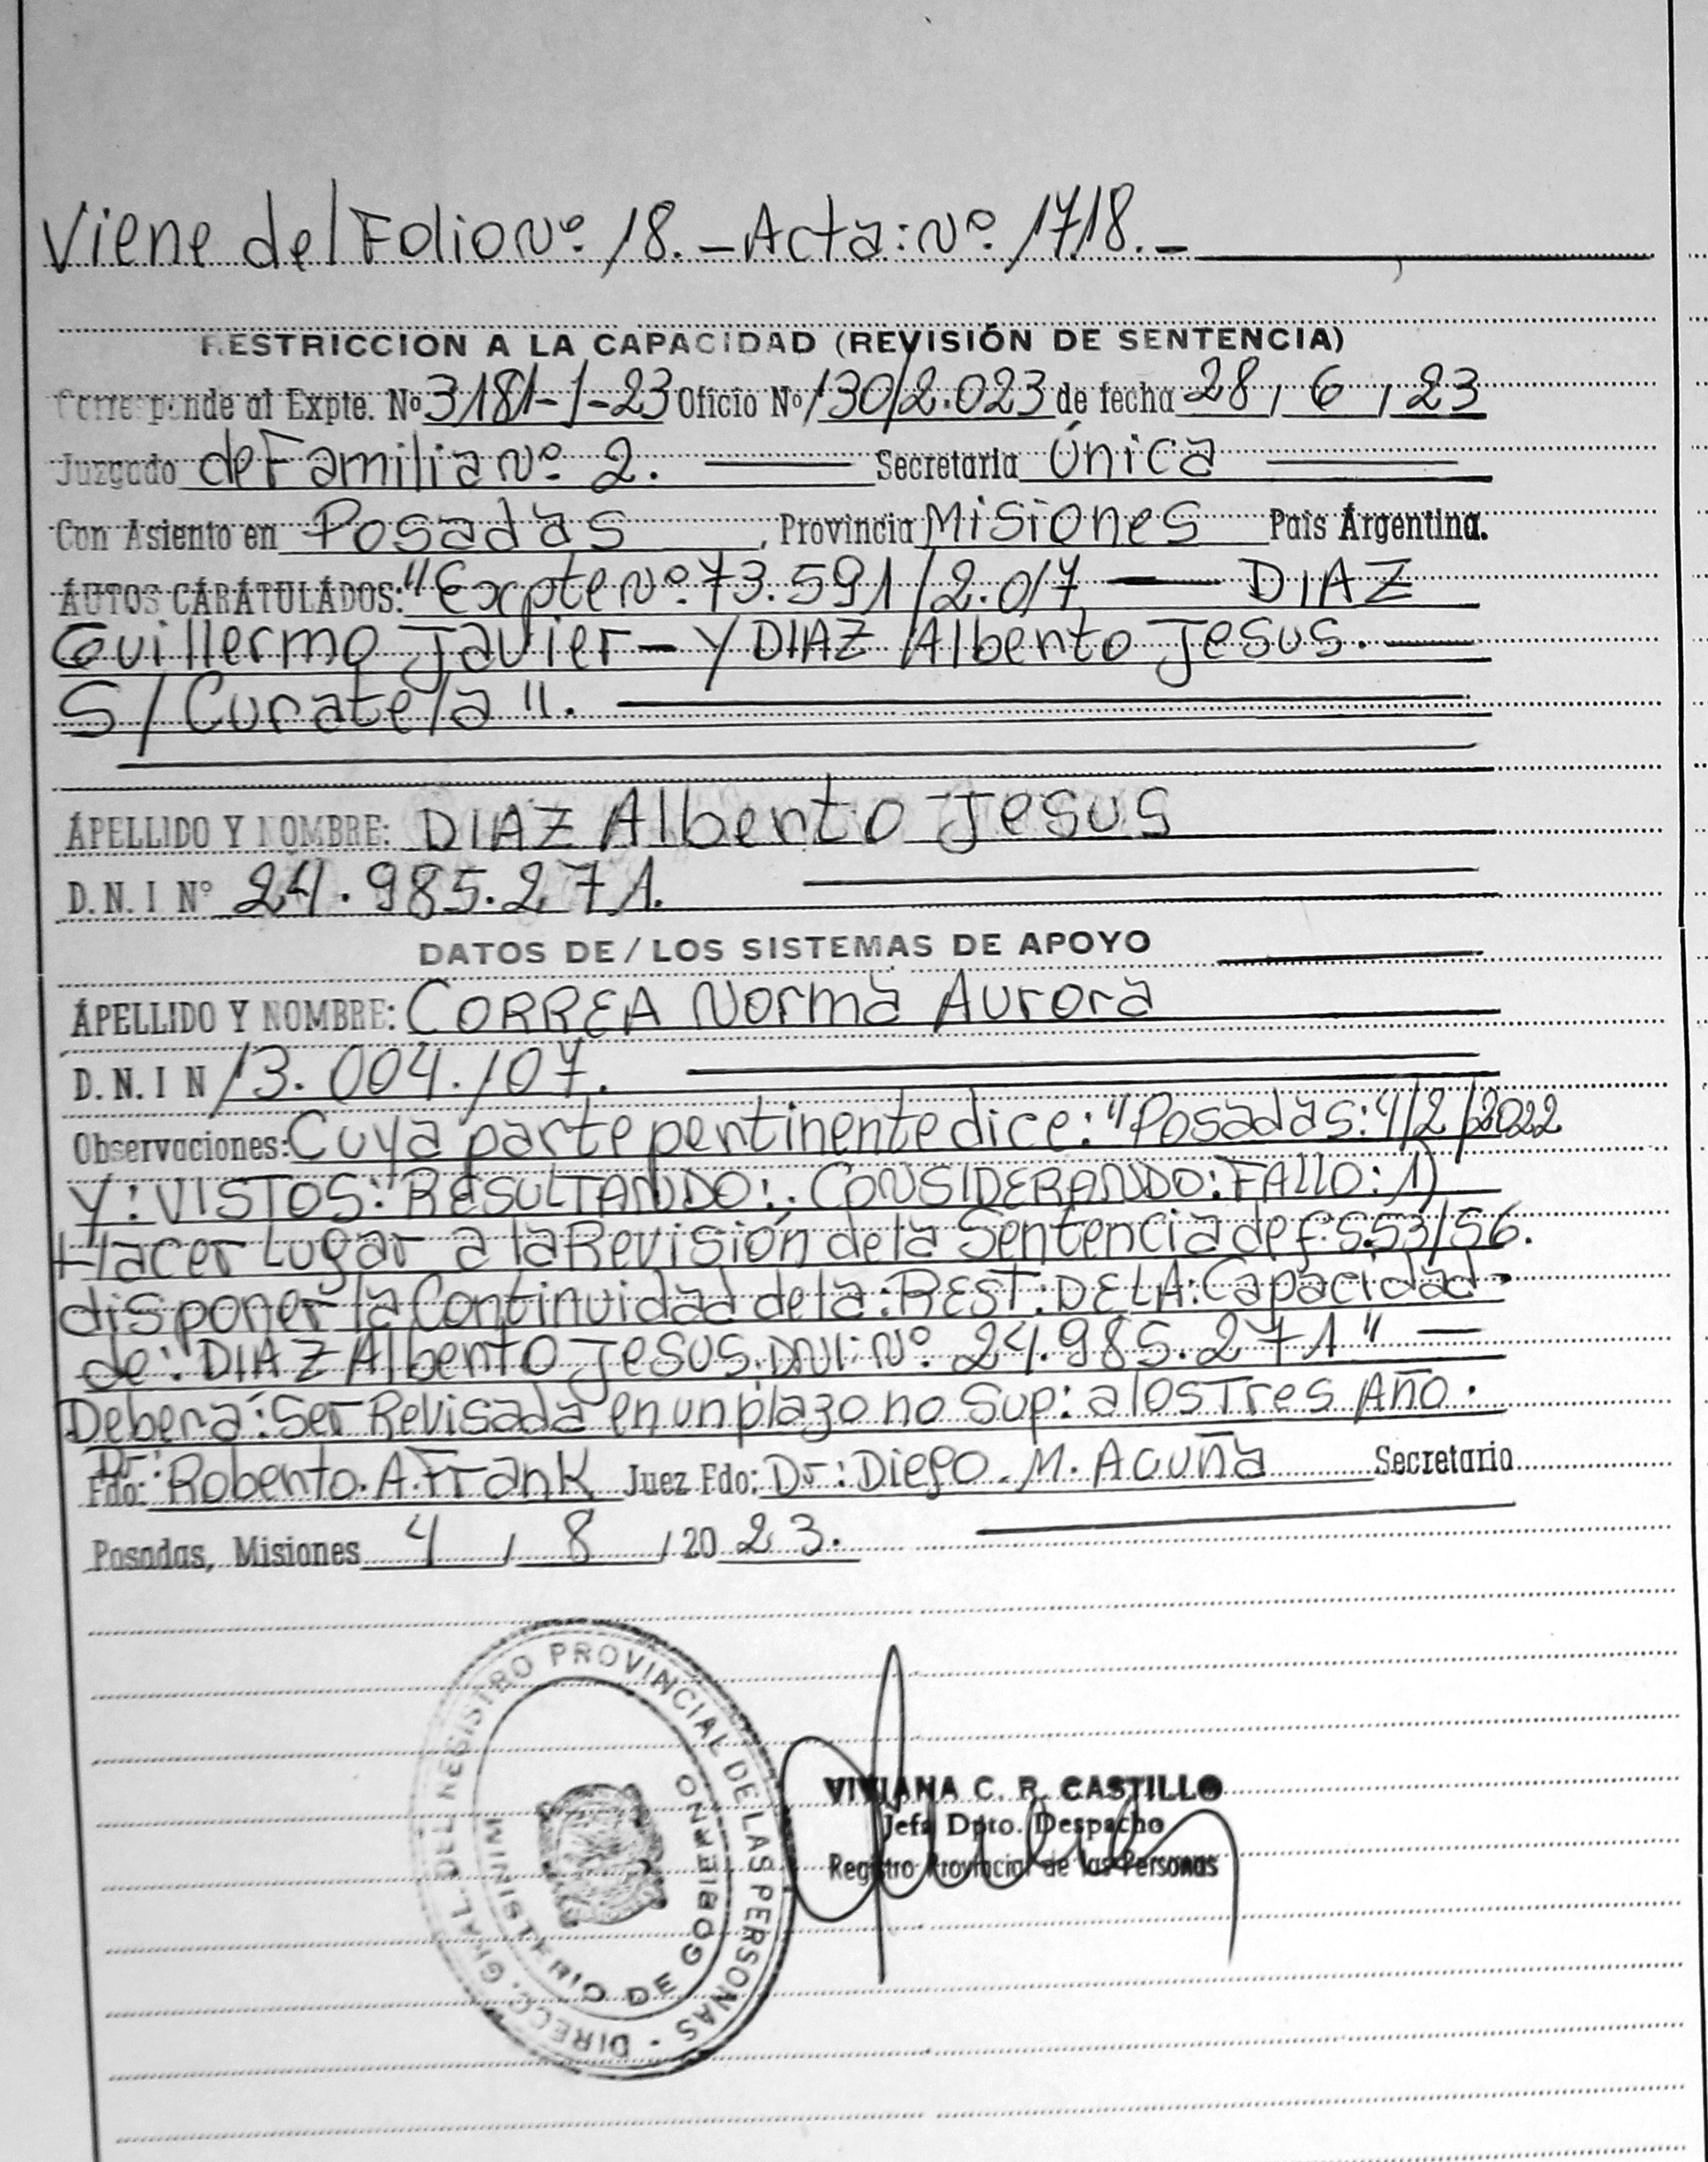 Viene del Folio Nº 18.- Acta: Nº 1718.-
RESTRICCION A LA CAPACIDAD (REVISIÓN DE SENTENCIA)
Corresponde al Expte. Nº 3181-1-23 Oficio Nº 130/2.023 de fecha 28 / 6 / 23
Juzgado de Familia Nº 2. Secretaria Única
Con Asiento en Posadas, Provincia Misiones Pais Argentina.
AUTOS CARATULADOS: "Expte Nº 73.591/2.017 — DIAZ
Guillermo Javier - Y DIAZ Alberto Jesus. —
S/Curatela".
APELLIDO Y NOMBRE: DIAZ Alberto Jesus
D.N.I Nº 24.985.271.
DATOS DE / LOS SISTEMAS DE APOYO
APELLIDO Y NOMBRE: CORREA Norma Aurora
D.N.I N 13.004.107.
Observaciones: Cuya parte pertinente dice: "Posadas: 4/2/2022
Y: VISTOS: RESULTANDO: CONSIDERANDO: FALLO: 1)
Hacer Lugar a la Revisión de la Sentencia de f.S.53/56.
disponer la Continuidad de la: REST: DE LA: Capacidad.
de: DIAZ Alberto Jesus. DNI: Nº 24.985.271" —
Debera: Ser Revisada en un plazo no Sup: a los Tres Año.
Fdo: Dr: Roberto. A. Frank Juez Fdo: Dr: Diego. M. Acuña Secretario
Posadas, Misiones 4 / 8 / 2023.
DIRECC. GRAL. DEL REGISTRO PROVINCIAL DE LAS PERSONAS -
MINISTERIO DE GOBIERNO
VIVIANA C. R. CASTILLO
Jefa Dpto. Despacho
Registro Provincial de las Personas